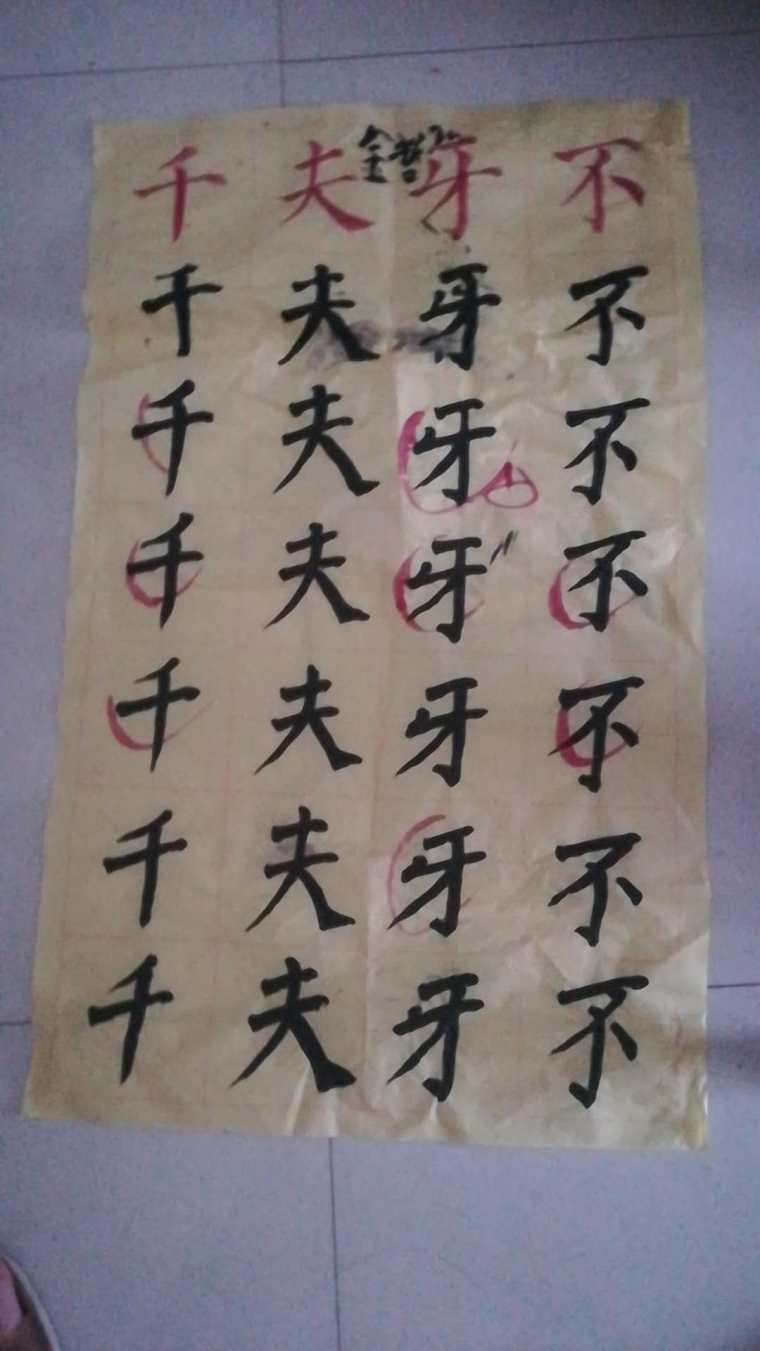 金哲
千 夫 牙 不
千 夫 牙 不
千 夫 牙 不
千 夫 牙 不
千 夫 牙 不
千 夫 牙 不
千 夫 牙 不